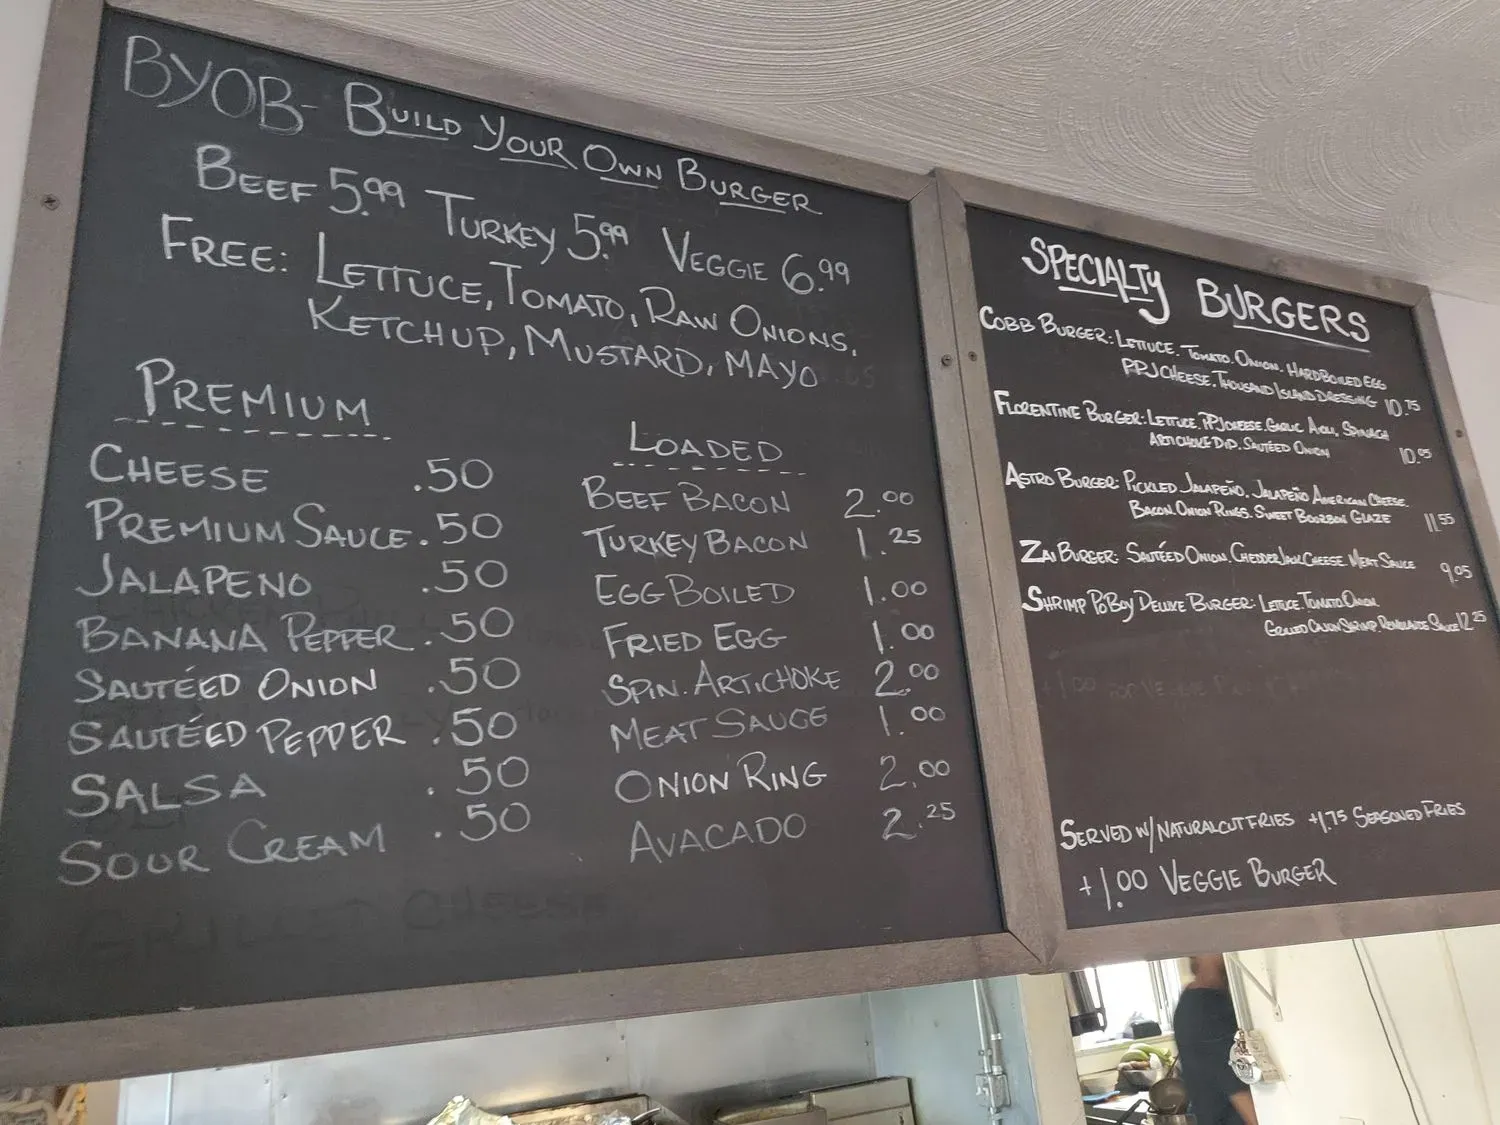 BYOB- BUILD YOUR OWN BURGER
BEEF 5.99 TURKEY 5.99 VEGGIE 6.99
FREE: LETTUCE, TOMATO, RAW ONIONS,
KETCHUP, MUSTARD, MAYO
PREMIUM
CHEESE .50
PREMIUM SAUCE .50
JALAPENO .50
BANANA PEPPER .50
SAUTÉED ONION .50
SAUTÉED PEPPER .50
SALSA .50
SOUR CREAM .50
GRILLED CHEESE
LOADED
BEEF BACON 2.00
TURKEY BACON 1.25
EGG BOILED 1.00
FRIED EGG 1.00
SPIN. ARTICHOKE 2.00
MEAT SAUCE 1.00
ONION RING 2.00
AVACADO 2.25
SPECIALTY BURGERS
COBB BURGER: LETTUCE. TOMATO. ONION. HARD BOILED EGG
PPJ CHEESE. THOUSAND ISLAND DRESSING 10.75
FLORENTINE BURGER: LETTUCE. PPJ CHEESE. GARLIC AIOLI, SPINACH
ARTICHOKE DIP. SAUTÉED ONION 10.95
ASTRO BURGER: PICKLED JALAPEÑO. JALAPEÑO AMERICAN CHEESE.
BACON. ONION RINGS. SWEET BOURBON GLAZE 11.55
ZAI BURGER: SAUTÉED ONION. CHEDDER JACK CHEESE. MEAT SAUCE 9.05
SHRIMP POBOY DELUXE BURGER: LETTUCE. TOMATO. ONION
GRILLED CAJUN SHRIMP. REMOULADE SAUCE 12.25
SERVED W/ NATURAL CUT FRIES +1.75 SEASONED FRIES
+1.00 VEGGIE BURGER